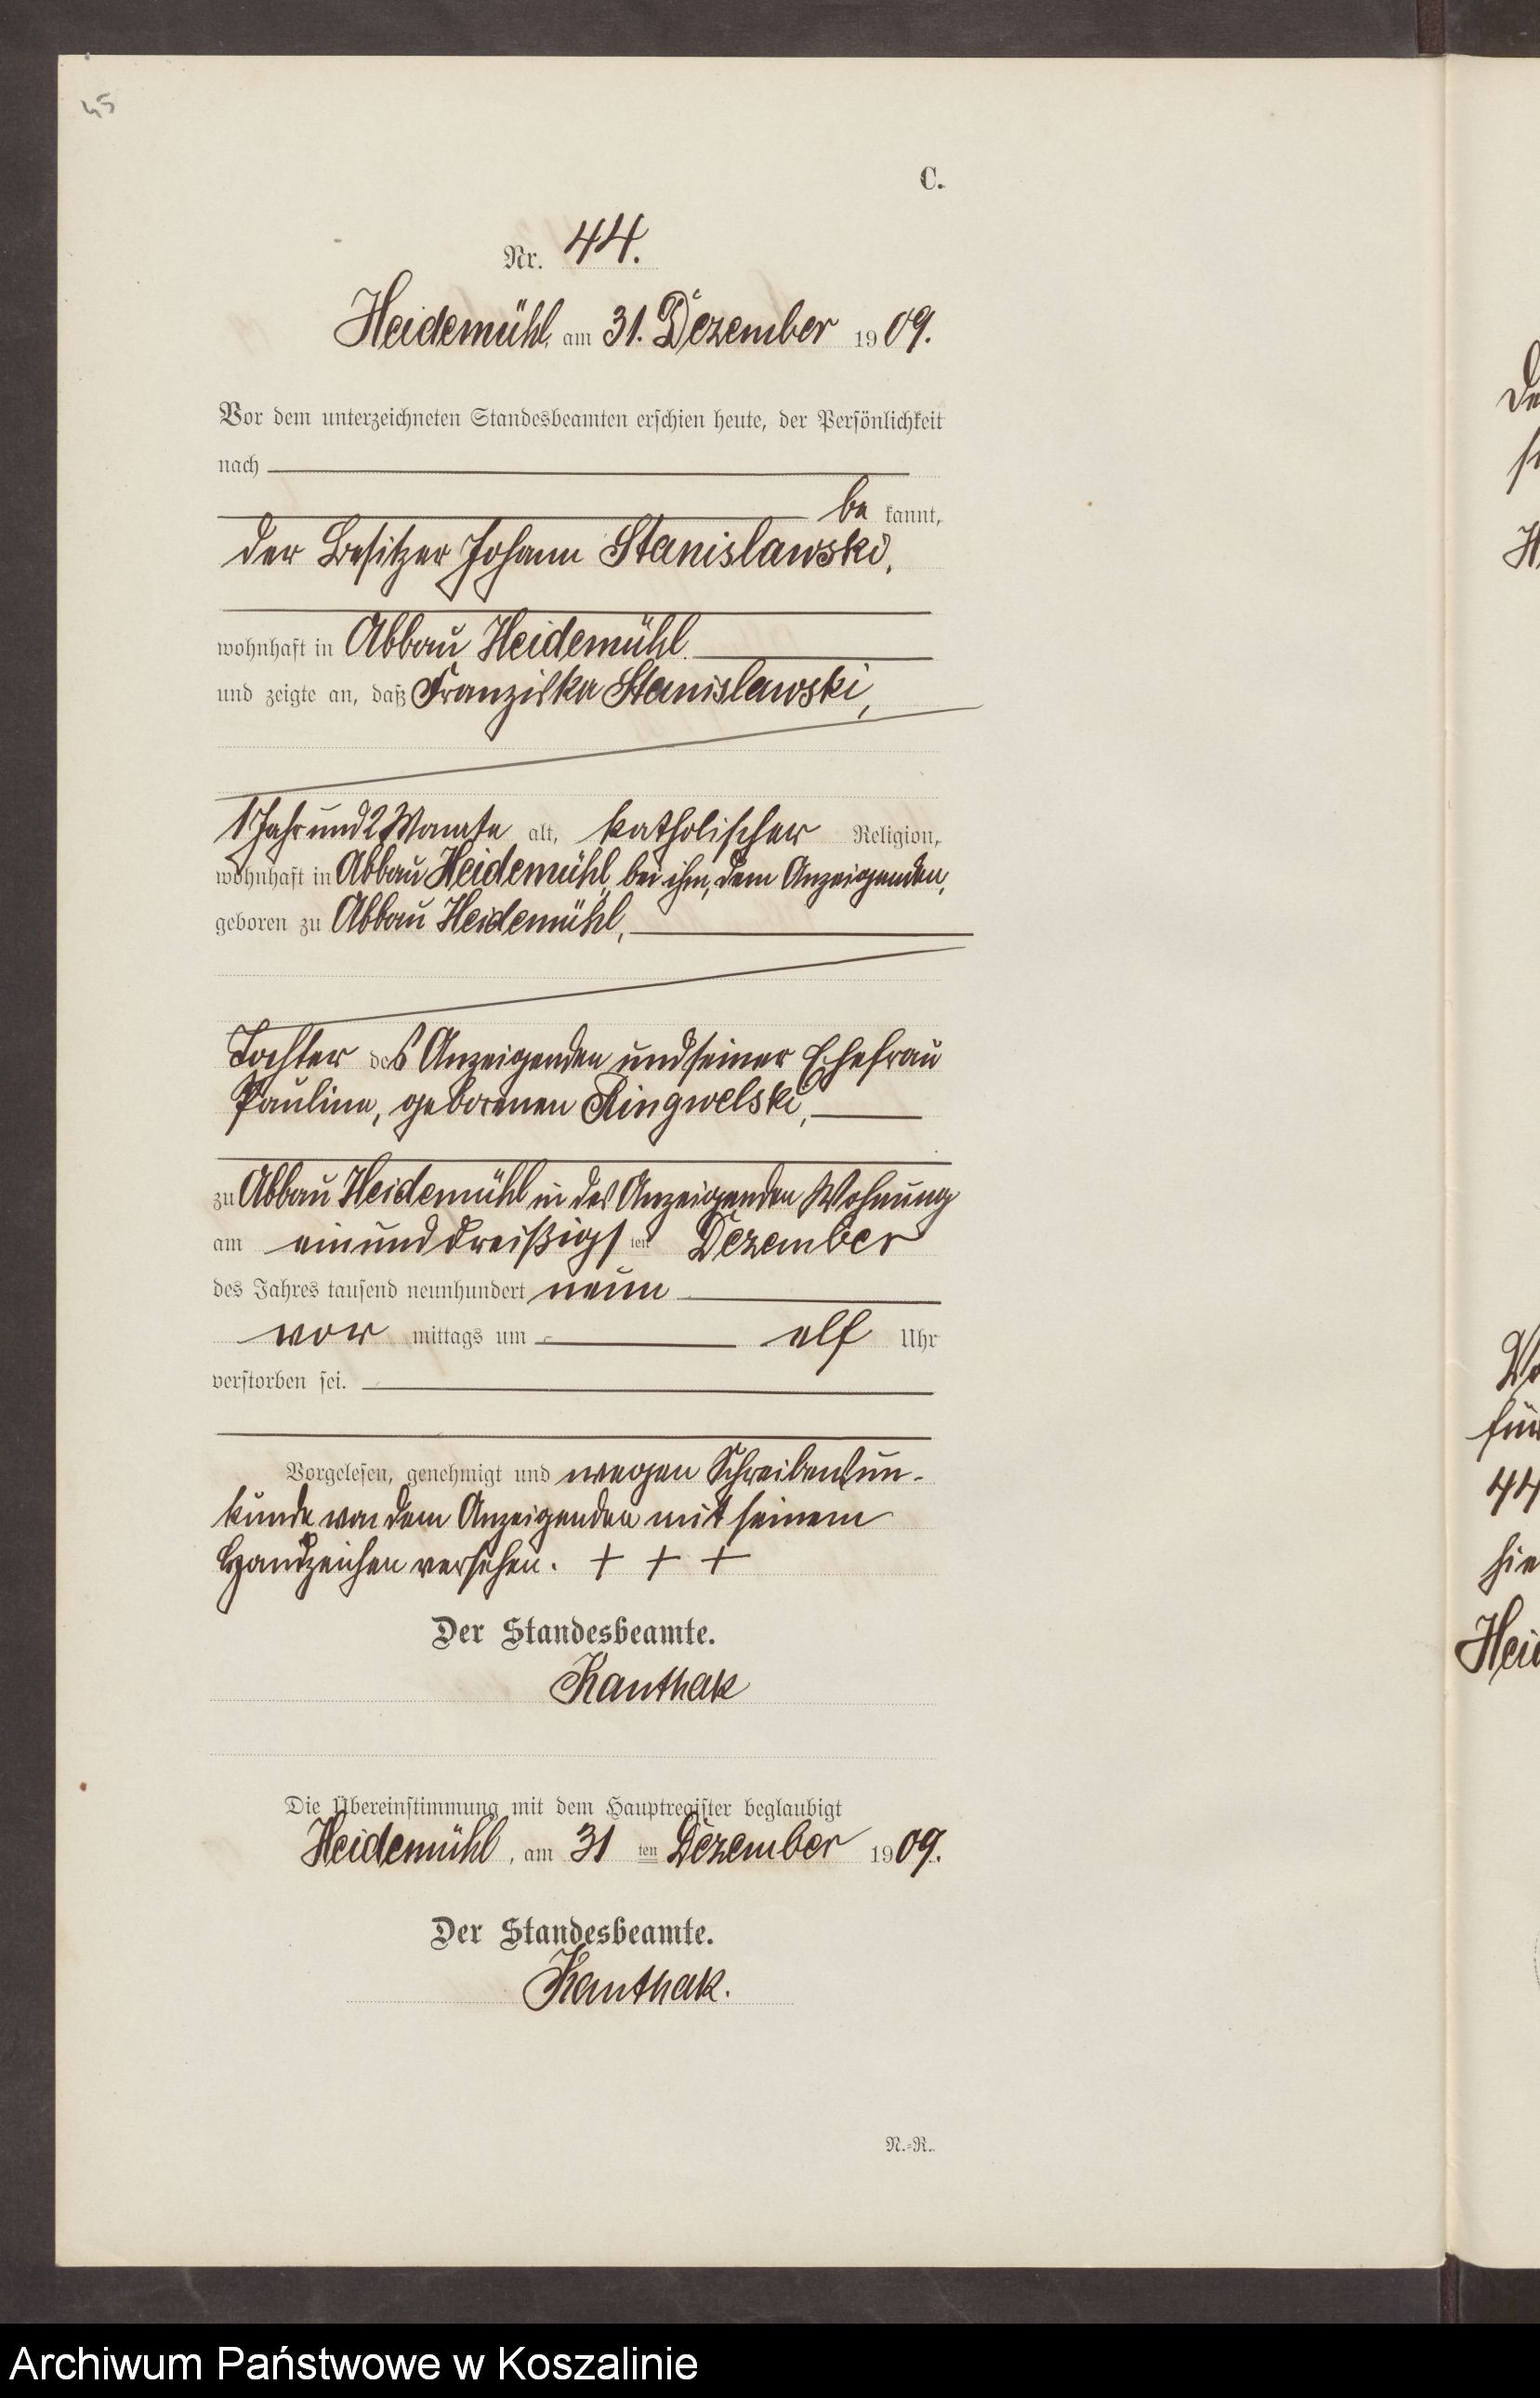 45
C.
Nr. 44.
Heidemühl, am 31. Dezember 1909.
Vor dem unterzeichneten Standesbeamten erschien heute, der Persönlichkeit
nach
be kannt,
der Besitzer Johann Stanislawski,
wohnhaft in Abbau Heidemühl
und zeigte an, daß Franziska Stanislawski,
1 Jahr und 2 Monate alt, katholischer Religion,
wohnhaft in Abbau Heidemühl, bei ihm, dem Anzeigenden,
geboren zu Abbau Heidemühl,
Tochter des Anzeigenden und seiner Ehefrau
Pauline, geborenen Ringwelski,
zu Abbau Heidemühl in des Anzeigenden Wohnung
am einunddreißigsten Dezember
des Jahres tausend neunhundert neun
vor mittags um elf Uhr
verstorben sei.
Vorgelesen, genehmigt und wegen Schreibensun-
kunde von dem Anzeigenden mit seinem
Handzeichen versehen. + + +
Der Standesbeamte.
Kanthak
Die Übereinstimmung mit dem Hauptregister beglaubigt
Heidemühl, am 31 ten Dezember 1909.
Der Standesbeamte.
Kanthak.
N.-R.
De
H
Vo
für
44
hie
Hei
Archiwum Państwowe w Koszalinie